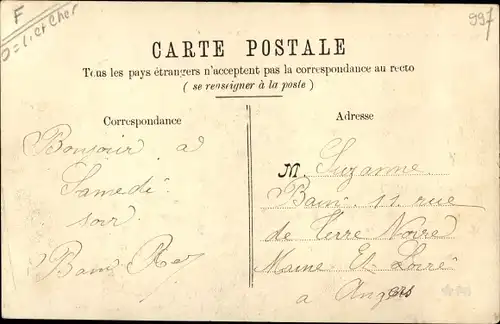 F
O = Lier Cher
997
CARTE POSTALE
Tous les pays étrangers n'acceptent pas la correspondance au recto
( se renseigner à la poste )
Correspondance
Adresse
Bonjour a
Samedi
soir
Bain
M. Suzanne
Bain 11 rue
de Terre Noire
Maine Et Loire
a Angers